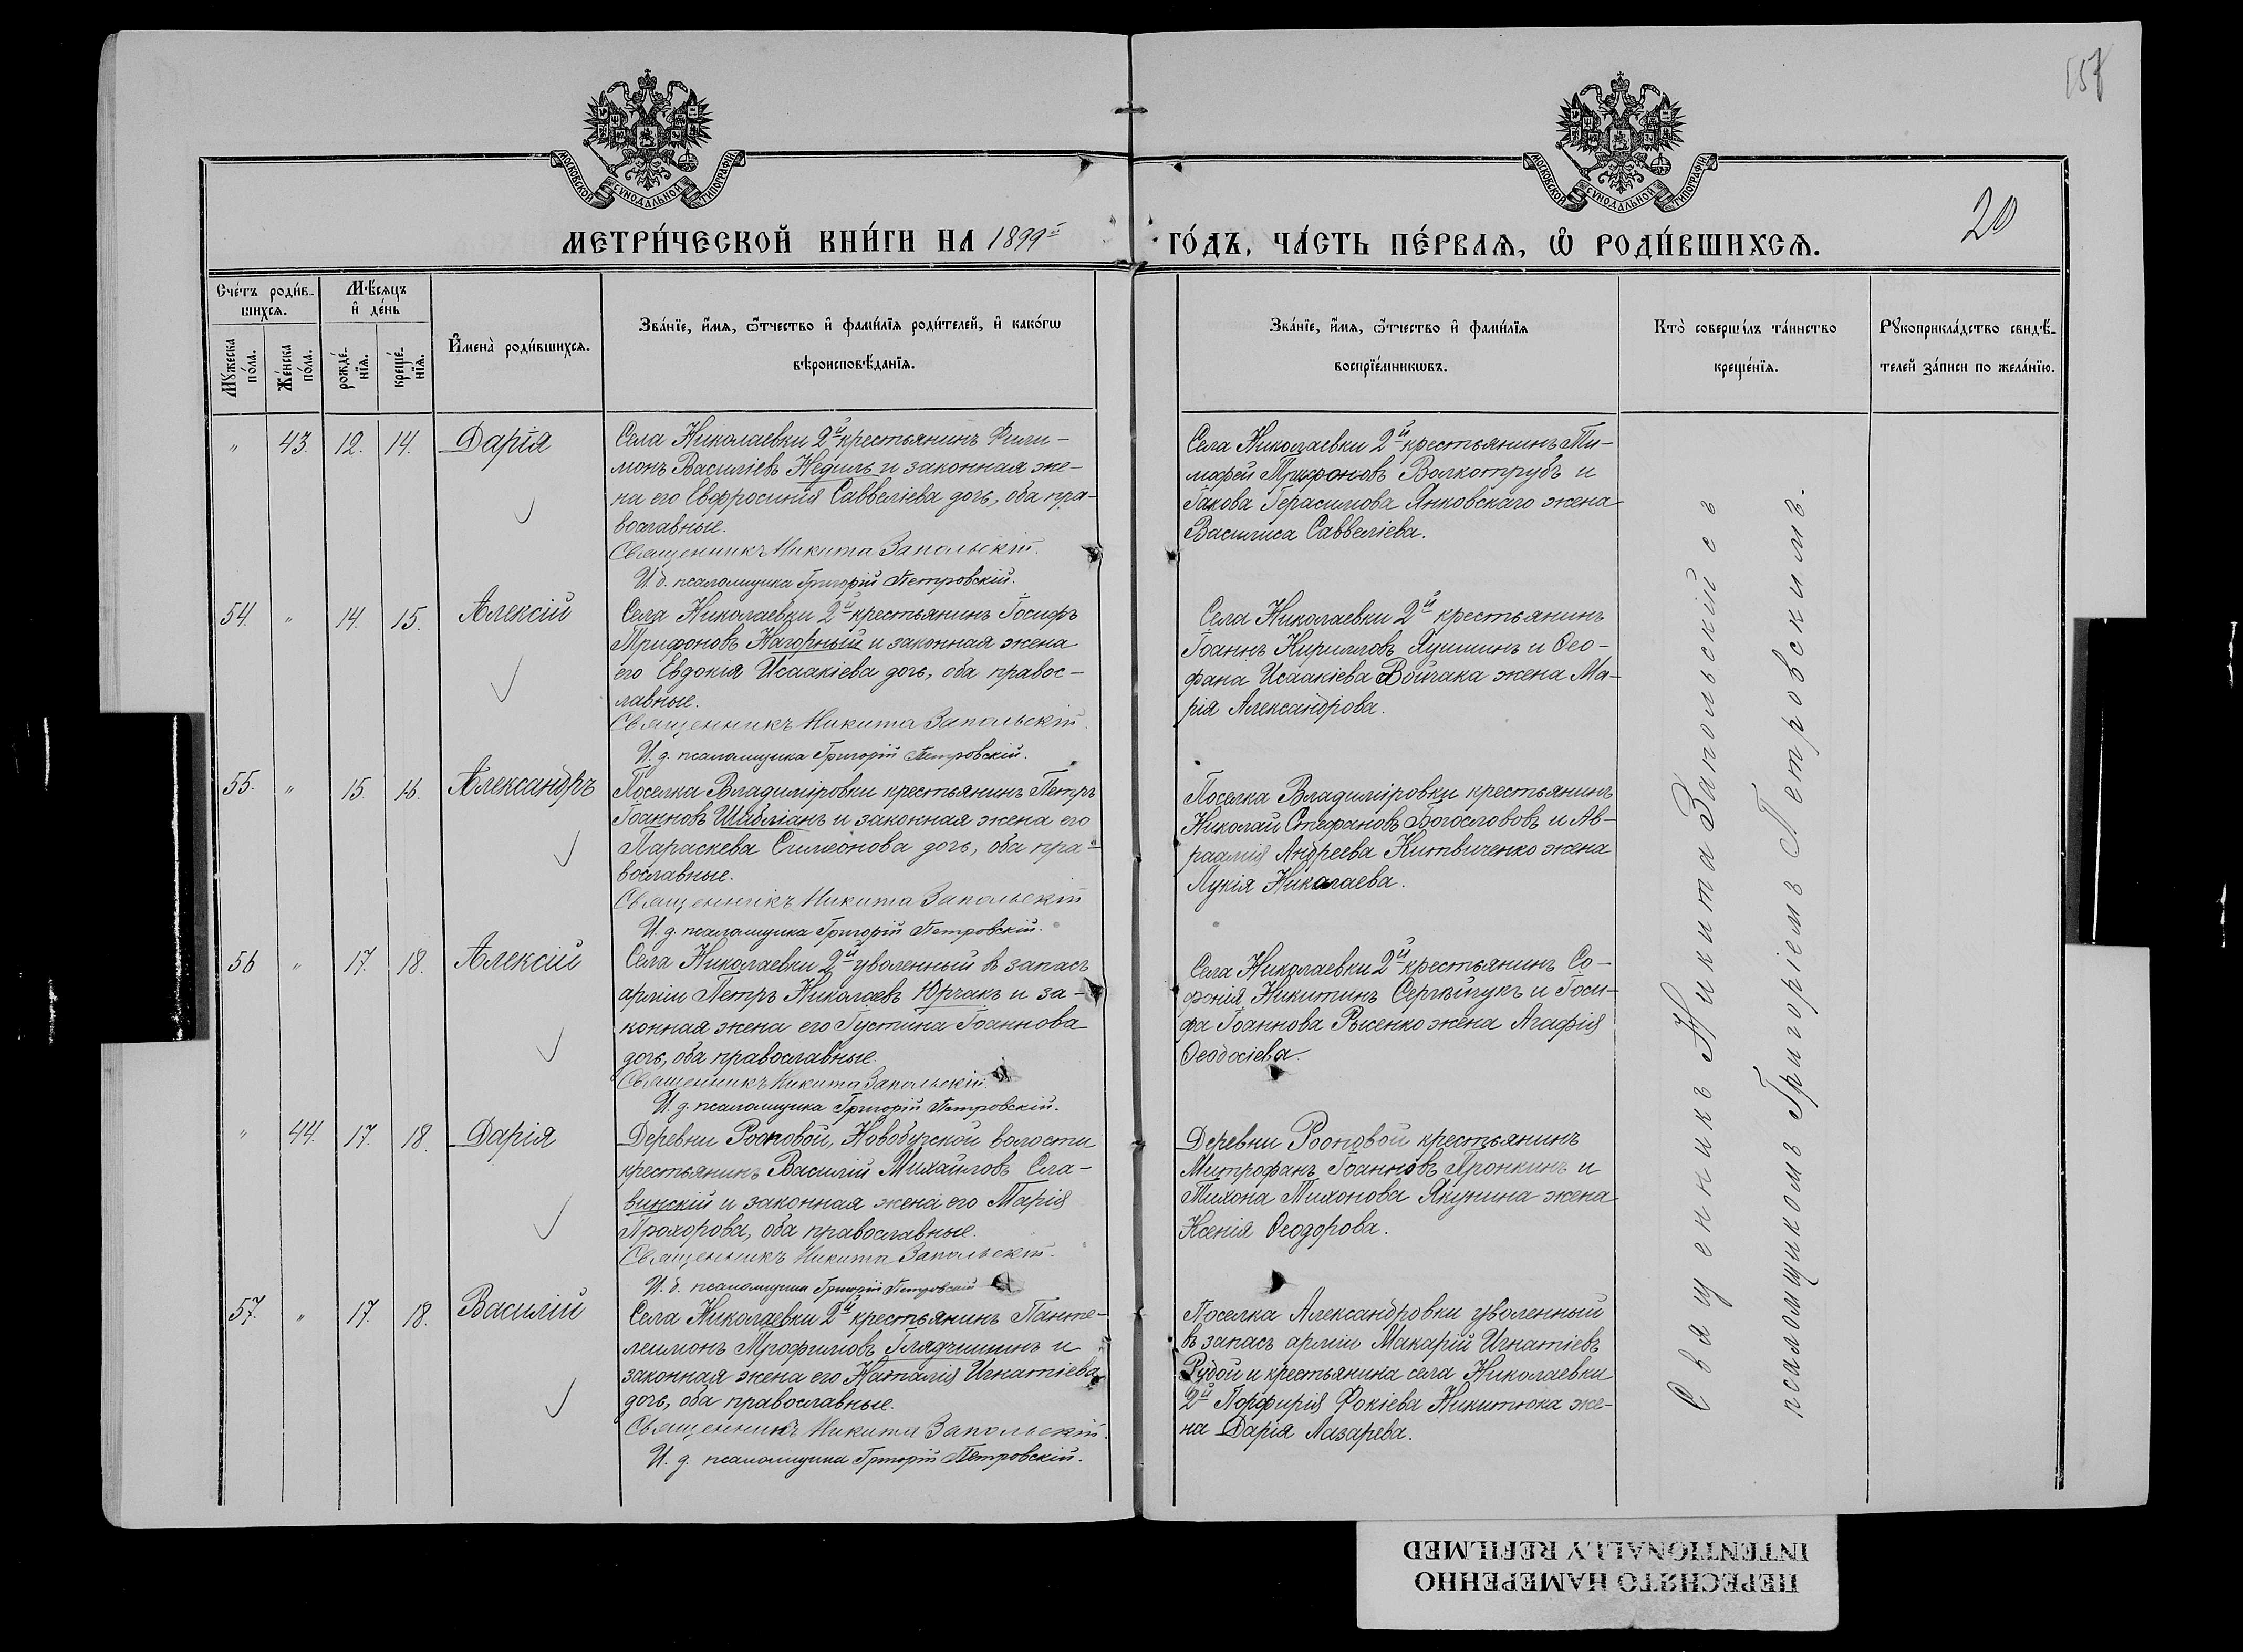 157
МОСКОВСКОЙ СѴНОДАЛЬНОЙ ТИПОГРАФІИ
МОСКОВСКОЙ СѴНОДАЛЬНОЙ ТИПОГРАФІИ
20
МЕТРИ́ЧЕСКОЙ КНИ́ГИ НА 1899й
ГО́ДЪ, ЧА́СТЬ ПЕ́РВАѦ, Ѡ҆ РОДИ́ВШИХСѦ.
Сче́тъ роди́в-
шихсѧ.
Мꙋ́жеска по́ла.
Же́нска по́ла.
Мѣ́сѧцъ
и҆ де́нь
рожде́-
нїѧ.
креще́-
нїѧ.
И҆мена̀ роди́вшихсѧ.
Зва́нїе, и҆́мѧ, ѻ҆́тчество и҆ фами́лїѧ роди́телей, и҆ како́гѡ
вѣроисповѣ́данїѧ.
Зва́нїе, и҆́мѧ, ѻ҆́тчество и҆ фами́лїѧ
воспрїе́мникѡвъ.
Кто̀ соверши́лъ та́инство
креще́нїѧ.
Рꙋкоприкла́дство свидѣ́-
телей за́писи по жела́нїю.
" 43. 12. 14. Дарія
Села Николаевки 2й крестьянинъ Фили-
монъ Василіевъ Недиль и законная же-
на его Евфросинія Савведіева дочь, оба пра-
вославные.
Священникъ Никита Запольскій.
И. д. псаломщика Григорій Петровскій.
Села Николаевки 2й крестьянинъ Ти-
моѳей Трифоновъ Волкотрубъ и
Іакова Герасимова Янковскаго жена
Василиса Саввеліева.
54. " 14. 15. Алексій
Села Николаевки 2й крестьянинъ Іосифъ
Трифоновъ Нагорный и законная жена
его Евдокія Исаакіева дочь, оба правос-
лавные.
Священникъ Никита Запольскій.
И. д. псаломщика Григорій Петровскій.
Села Николаевки 2й крестьянинъ
Іоаннъ Кирилловъ Яушинъ и Ѳео-
фана Исаакіева Войчака жена Ма-
рія Александрова.
55. " 15. 16. Александръ
Поселка Владиміровки крестьянинъ Петръ
Іоанновъ Шабліанъ и законная жена его
Параскева Симеонова дочь, оба пра-
вославные.
Священникъ Никита Запольскій
И. д. псаломщика Григорій Петровскій.
Поселка Владиміровки крестьянинъ
Николай Стефановъ Богослововъ и Ав-
раамія Андреева Китвиченко жена
Лукія Николаева.
56 " 17. 18. Алексій
Села Николаевки 2й уволенный въ запасъ
арміи Петръ Николаевъ Юрчакъ и за-
конная жена его Іустина Іоаннова
дочь, оба православные.
Священникъ Никита Запольскій.
И. д. псаломщика Григорій Петровскій.
Села Николаевки 2й крестьянинъ Со-
фонія Никитинъ Сергѣйчукъ и Іоси-
фа Іоаннова Рысенко жена Агафія
Ѳеодосіева.
" 44. 17. 18. Дарія
Деревни Рооповой, Новобугской волости
крестьянинъ Василій Михайловъ Сла-
винскій и законная жена его Марія
Прохорова, оба православные.
Священникъ Никита Запольскій.
И. д. псаломщика Григорій Петровскій
Деревни Рооповой крестьянинъ
Митрофанъ Іоанновъ Пронкинъ и
Тихона Тихонова Якунина жена
Ксенія Ѳеодорова.
57. " 17. 18. Василій
Села Николаевки 2й крестьянинъ Панте-
леимонъ Трофимовъ Глядчишинъ и
законная жена его Наталія Игнатіева
дочь, оба православные.
Священникъ Никита Запольскій.
И. д. псаломщика Григорій Петровскій.
Поселка Александровки уволенный
въ запасъ арміи Макарій Игнатіевъ
Рудой и крестьянина села Николаевки
2й Порфирія Фокіева Никитюка же-
на Дарія Лазарева.
Священникъ Никита Запольскій съ
псаломщикомъ Григоріемъ Петровскимъ.
ПЕРЕСНЯТО НАМЕРЕННО
INTENTIONALLY REFILMED